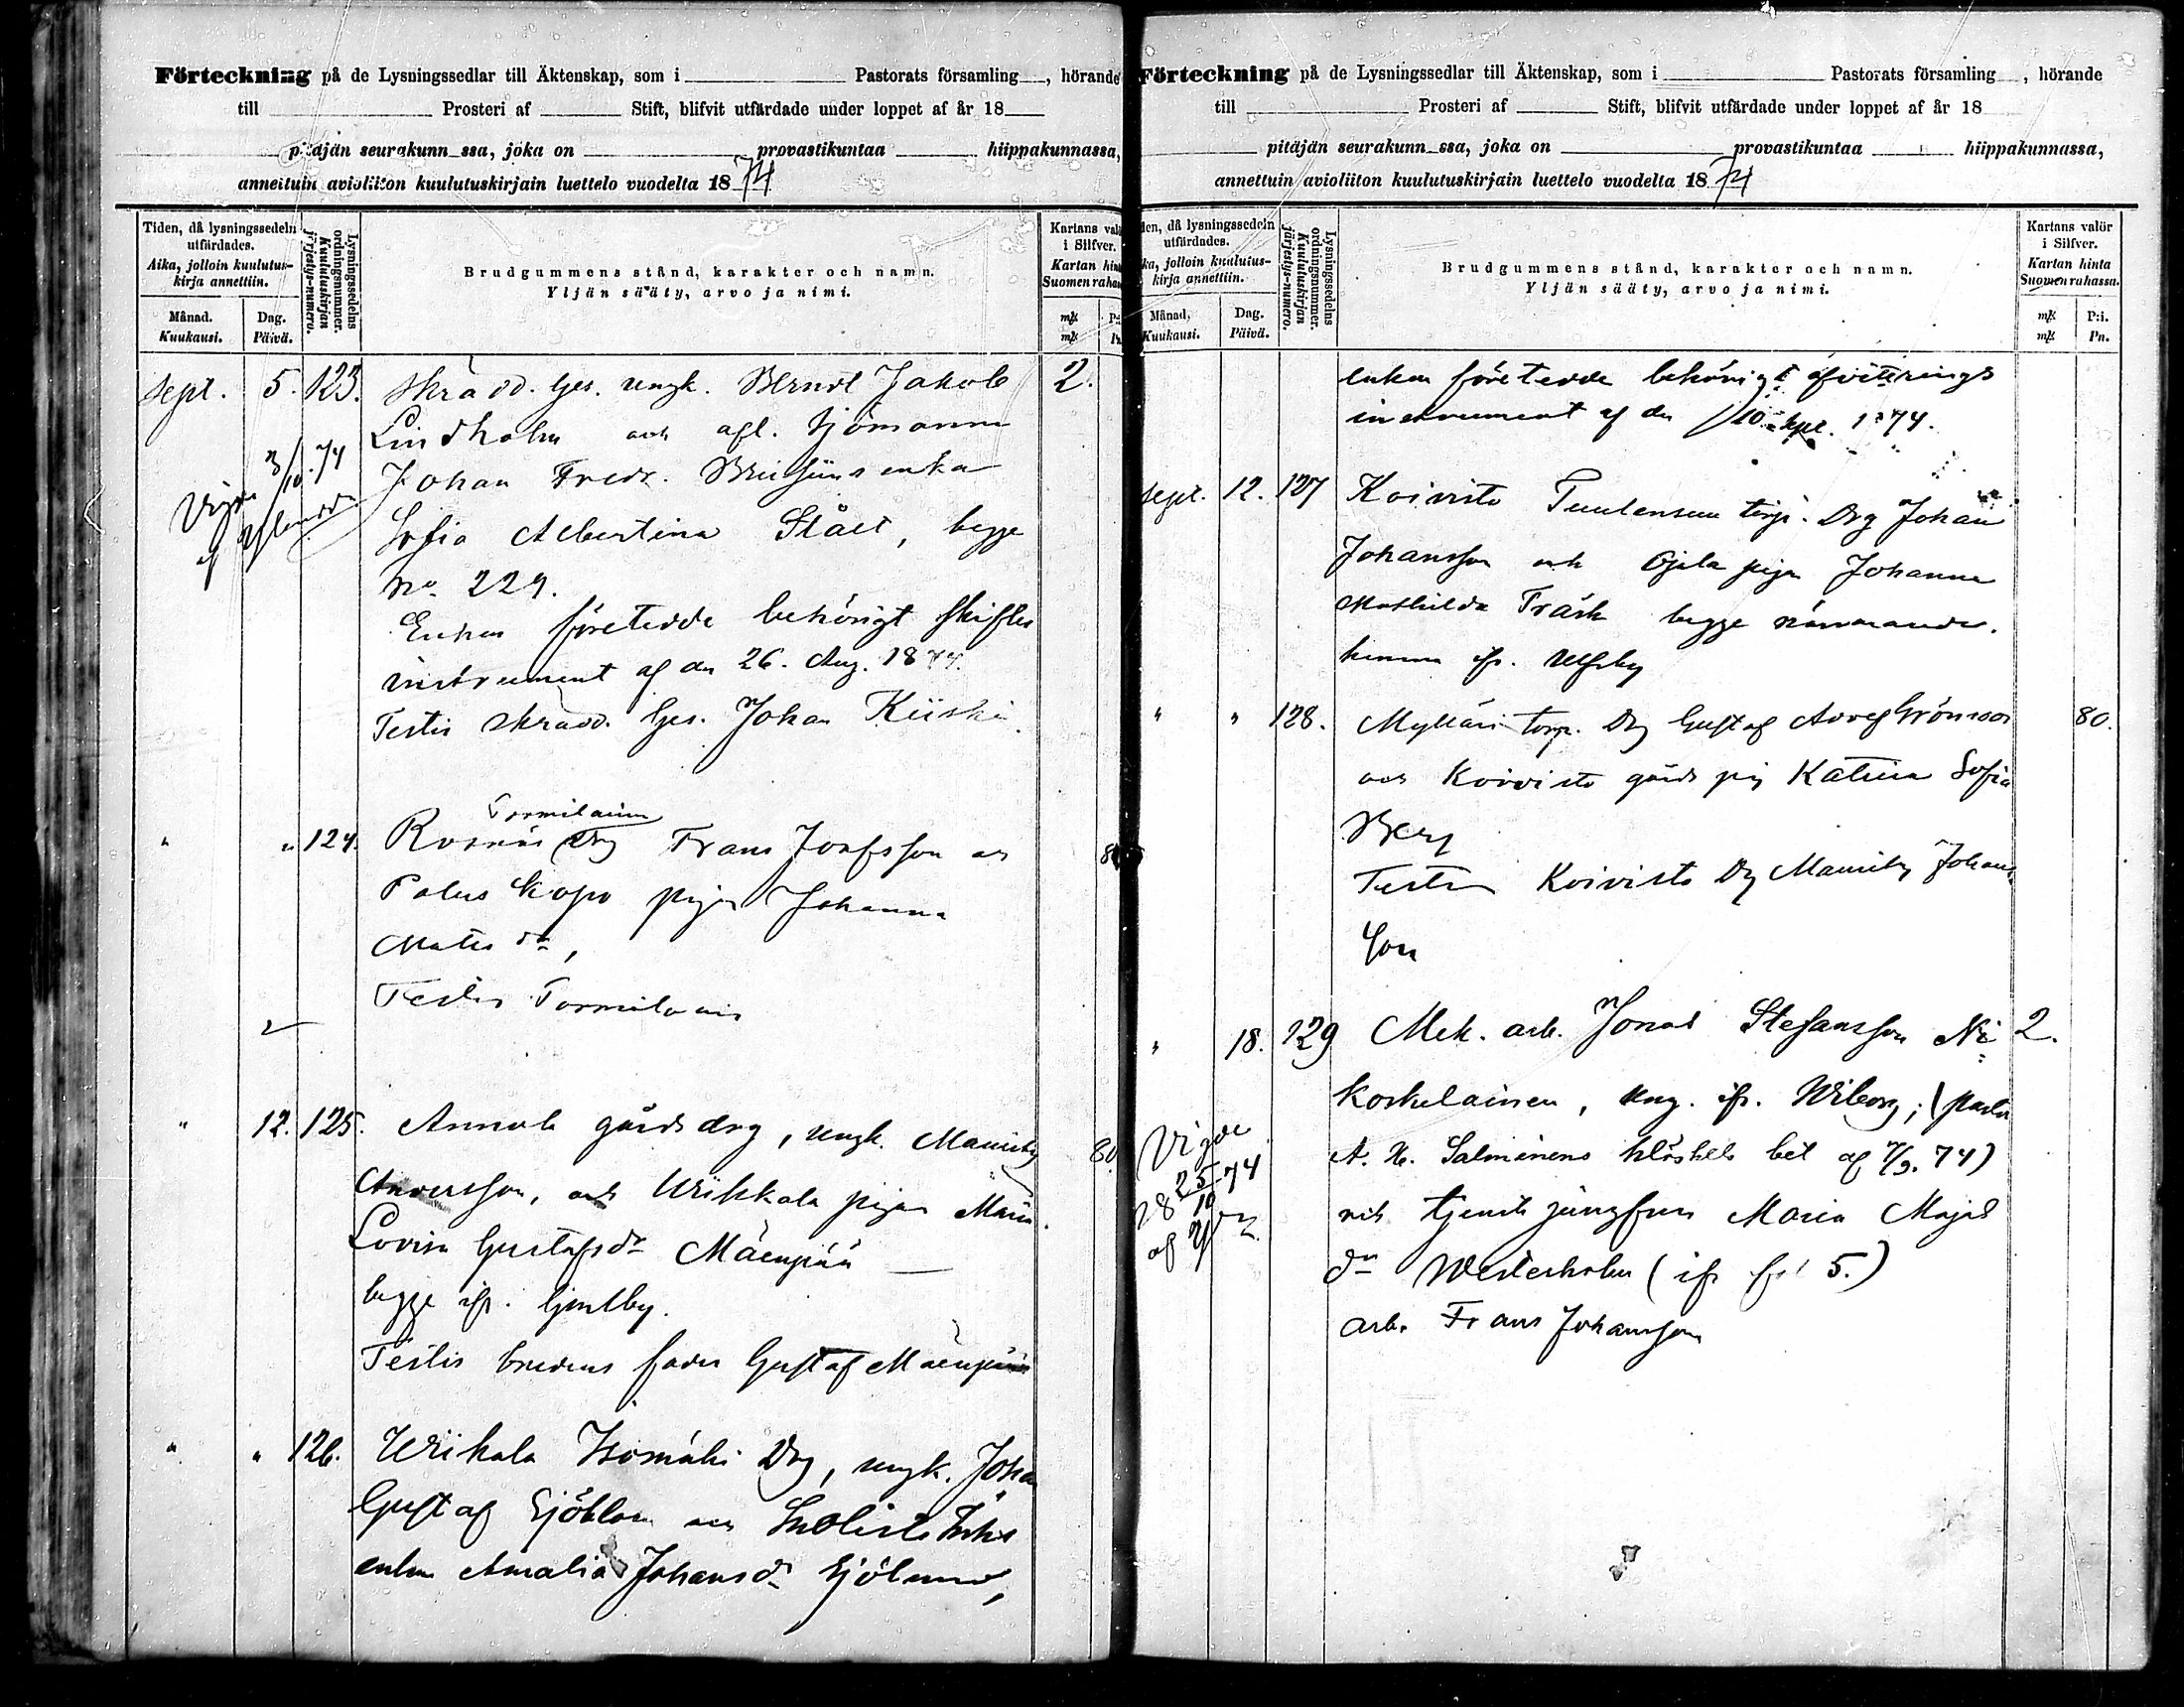 Förteckning på de Lysningssedlar till Äktenskap, som i Pastorats församling, hörande
till Prosteri af Stift, blifvit utfärdade under loppet af år 18
pitäjän seurakunn ssa, joka on provastikuntaa hiippakunnassa,
annettuin avioliiton kuulutuskirjain luettelo vuodelta 1874
Tiden, då lysningssedeln utfärdades.
Aika, jolloin kuulutus-kirja annettiin.
Månad. Kuukausi.
Dag. Päivä.
Lysningssedelns ordningsnummer.
Kuulutuskirjan järjestys-numero.
Brudgummens stånd, karakter och namn.
Yljän sääty, arvo ja nimi.
Kartans valör i Silfver.
Kartan hinta Suomen rahassa.
Sept. 5. 123. Skrädd. Ges. ungk. Berndt Jakob 2.
Lindholm och afl. Sjömannen
Johan Fredr. enka
Sofia Albertina Stålt, begge
No. 229.
Enkan företedde behörigt skiftes
instrument af den 26. Aug. 1874.
Testis Skrädd. Ges. Johan Kiiski.
Vigde 3/10.74
af
" " 124. Rosnäs Tormilainen Drg Frans Josefsson och 80
Palus Kopo pigan Johanna
Mats dr,
Testis Tormilainen
" 12. 125. Annala gårds drg, ungk. Maurits 80
Andersson, och Wiikkala pigan Maria
Lovisa Gustafsdr Mäenpää
begge ifr.
Testis brudens fader Gustaf Mäenpää
" " 126. Wiikala Isomäki Drg, ungk. Johan
Gustaf Sjöblom och
enkan Amalia Johansdr Sjölund,
Förteckning på de Lysningssedlar till Äktenskap, som i Pastorats församling, hörande
till Prosteri af Stift, blifvit utfärdade under loppet af år 18
pitäjän seurakunn ssa, joka on provastikuntaa hiippakunnassa,
annettuin avioliiton kuulutuskirjain luettelo vuodelta 1874
Tiden, då lysningssedeln utfärdades.
Aika, jolloin kuulutus-kirja annettiin.
Månad. Kuukausi.
Dag. Päivä.
Lysningssedelns ordningsnummer.
Kuulutuskirjan järjestys-numero.
Brudgummens stånd, karakter och namn.
Yljän sääty, arvo ja nimi.
Kartans valör i Silfver.
Kartan hinta Suomen rahassa.
mk P:i.
mk Pn.
enkan företedde behörigt afvittrings
instrument af den 10 Sept. 1874.
Sept. 12. 127 Koivisto torp. Drg Johan
Johansson och Ojala pigan Johanna
Mathilda Träsk begge närvarande.
hemma ifr. Ulfsby
" " 128. Mylläri torp. Drg Gustaf Grönroos 80.
och Koivisto gårds pig Katrina Sofia
Berg
Testis Koivisto Drg Maurits Johans
son
" 18. 129 Mek. arb. Jonas Stefansson Ni 2.
koskelainen, ung. ifr. Wiborg; (pastor
A. H. Salminens bet af 7/9. 74)
och tjenste jungfrun Maria Majas
dr Westerholm (ifr 5.)
arb. Frans Johansson
Vigde
25/10 74
af